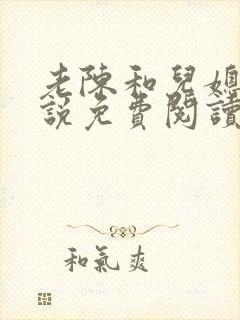 老陳和兒媳
說免費閱讀
和氣爽